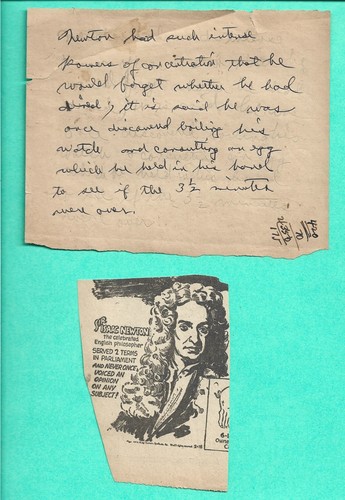 Newton had such intense
powers of concentration that he
would forget whether he had
dined; it is said he was
once discovered boiling his
watch and consulting an egg
which he held in his hand
to see if the 3½ minutes
were over.
SIR
ISAAC NEWTON
The celebrated
English philosopher
SERVED 2 TERMS
IN PARLIAMENT
AND NEVER ONCE
VOICED AN
OPINION
ON ANY
SUBJECT!